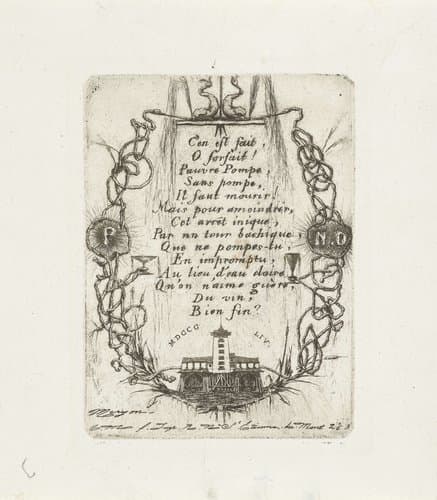 C'en est fait,
O forfait!
Pauvre Pompe,
Sans pompe,
Il faut mourir.
Mais pour amoindrir,
Cet arrêt inique,
Par un tour bachique,
Que ne pompes-tu,
En impromptu,
Au lieu d'eau claire,
Qu'on n'aime guère,
Du vin,
Bien fin?
P.
N.D
MDCCC LIV.
Meryon